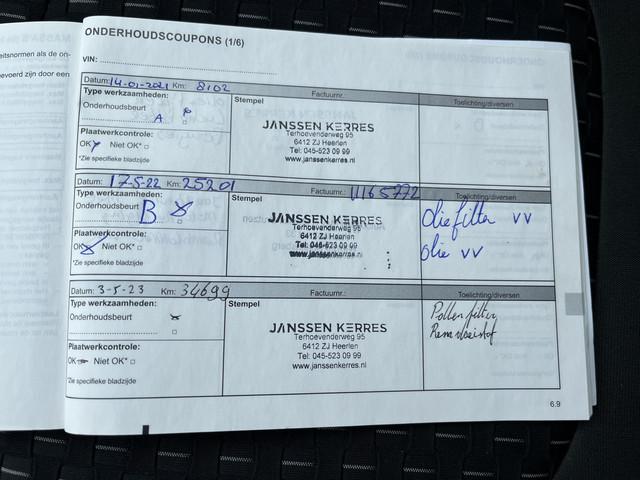 eitsnormen als de on-
evoerd zijn door een
ONDERHOUDSCOUPONS (1/6)
VIN:
Datum: 14-01-2021 Km: 8102
Factuurnr.:
Type werkzaamheden:
Stempel
Toelichting/diversen
Onderhoudsbeurt
A
JANSSEN KERRES
Terhoevenderweg 95
6412 ZJ Heerlen
Tel: 045-523 09 99
www.janssenkerres.nl
Plaatwerkcontrole:
OK Niet OK*
*Zie specifieke bladzijde
Datum: 17-5-22 Km: 25201
Factuurnr.: 11165772
Type werkzaamheden:
Stempel
Toelichting/diversen
Onderhoudsbeurt B
Oliefilter VV
olie VV
JANSSEN KERRES
Terhoevenderweg 95
6412 ZJ Heerlen
Tel: 045-523 09 99
www.janssenkerres.nl
Plaatwerkcontrole:
OK Niet OK*
*Zie specifieke bladzijde
Datum: 3-5-23 Km: 34699
Factuurnr.:
Type werkzaamheden:
Stempel
Toelichting/diversen
Onderhoudsbeurt
Pollenfilter,
Remvloeistof
JANSSEN KERRES
Terhoevenderweg 95
6412 ZJ Heerlen
Tel: 045-523 09 99
www.janssenkerres.nl
Plaatwerkcontrole:
OK Niet OK*
*Zie specifieke bladzijde
6.9